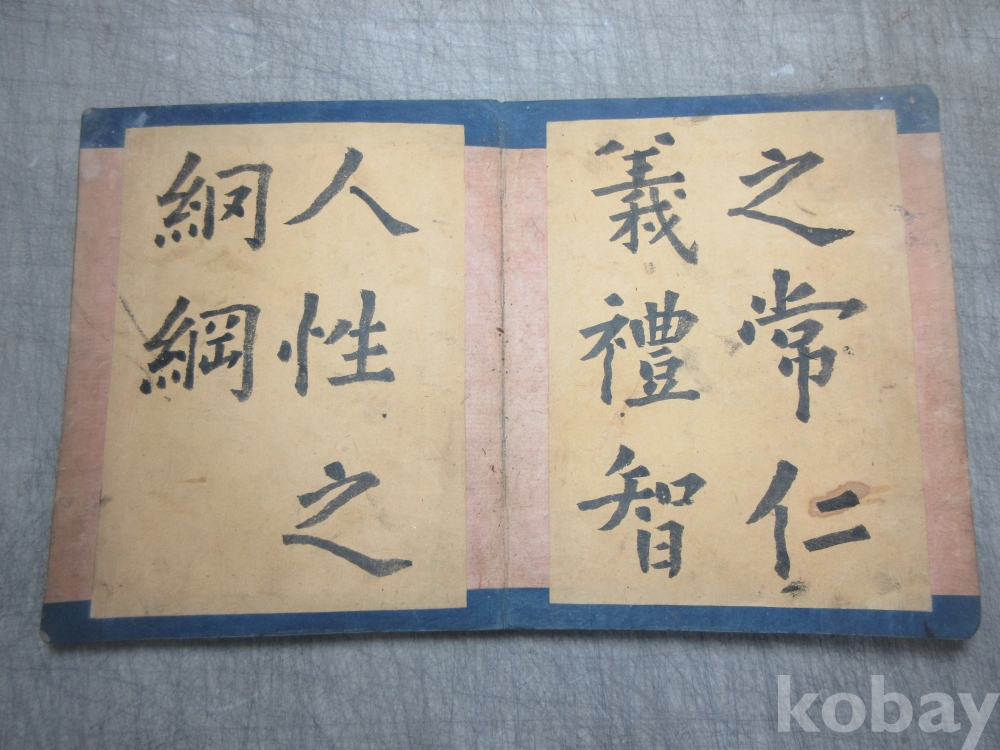 之常仁
義禮智
人性之
綱